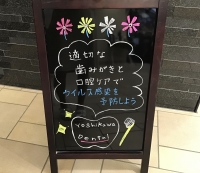 適切な
歯みがきと
口腔ケアで
ウイルス感染を
予防しよう
Yoshikawa
Dental